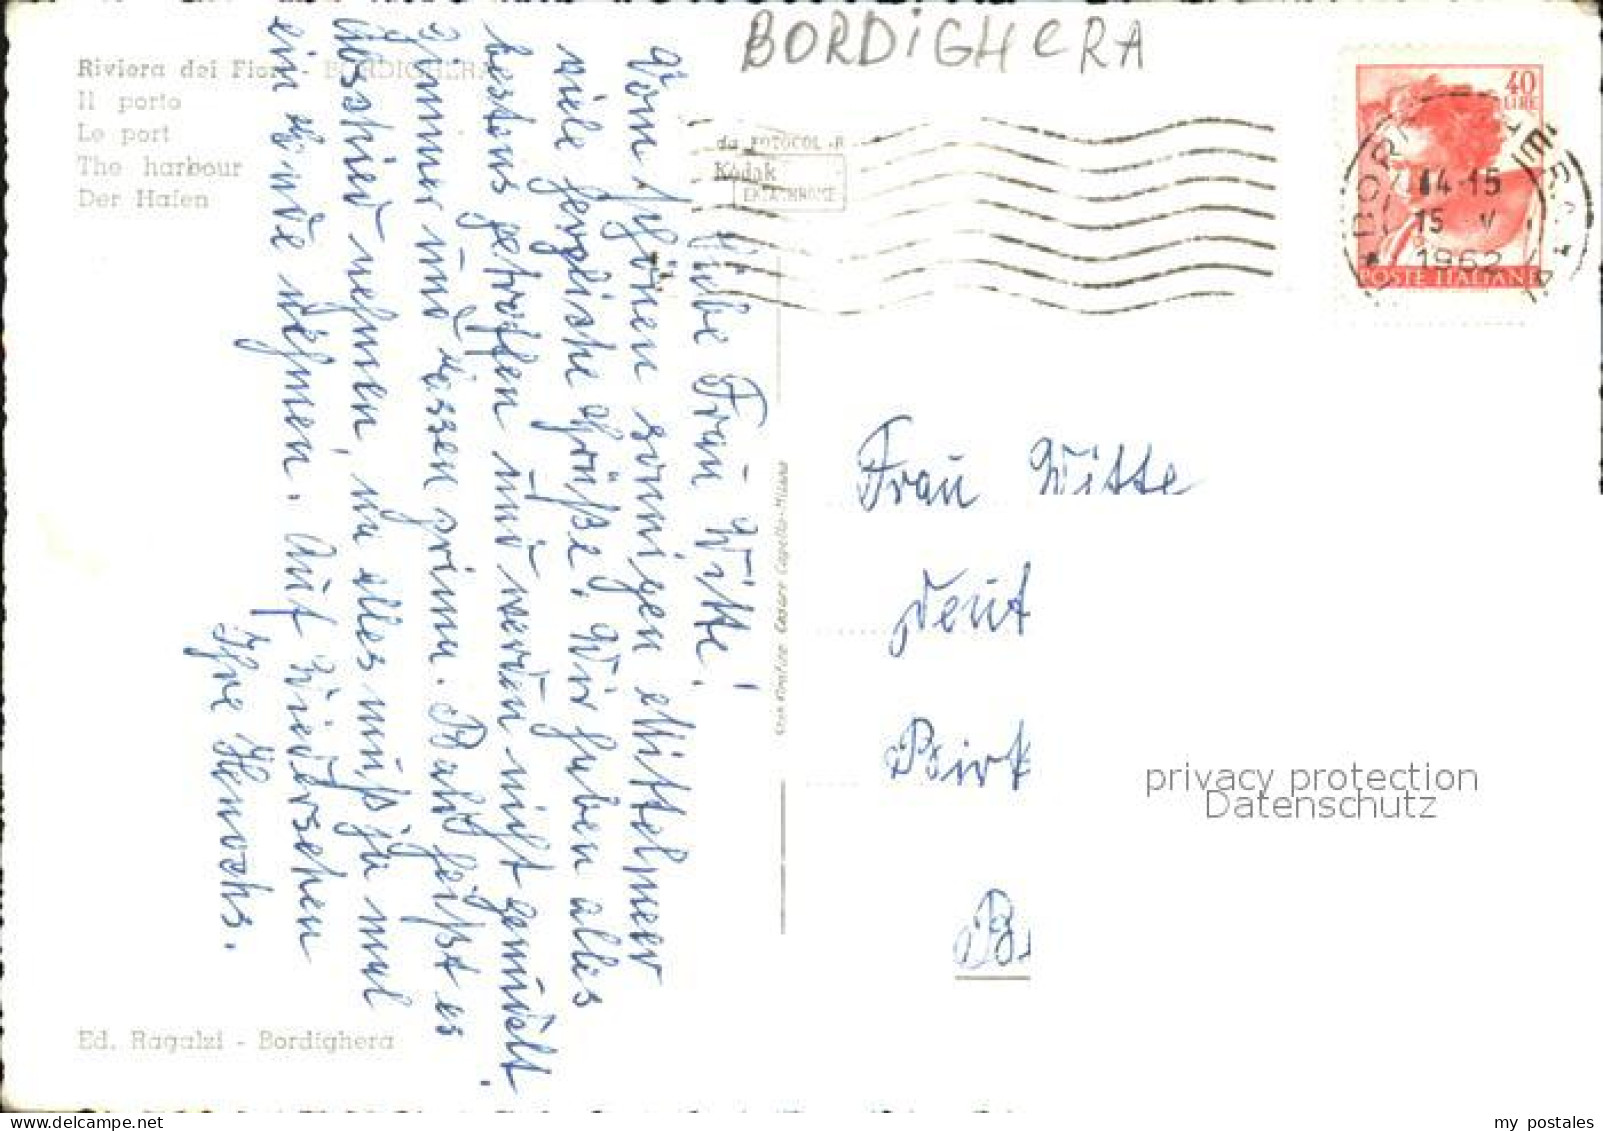 BORDiGHeRA
Riviera dei Fiori - BORDIGHERA
Il porto
Le port
The harbour
Der Hafen
da FOTOCOLOR
Kodak
EKTACHROME
40
LIRE
14-15
15 V
1962
POSTE ITALIANE
Liebe Frau Witte!
Vom schönen sonnigen Mittelmeer
viele herzliche Grüße. Wir haben alles
bestens getroffen und werden nicht gewählt.
Zimmer und Essen prima. Bald heißt es
Abschied nehmen, na alles muß ja mal
ein Ende nehmen. Auf Wiedersehen
Ihre
Frau Witte
Birk
B
Ed. Ragalzi - Bordighera
privacy protection
Datenschutz
my postales